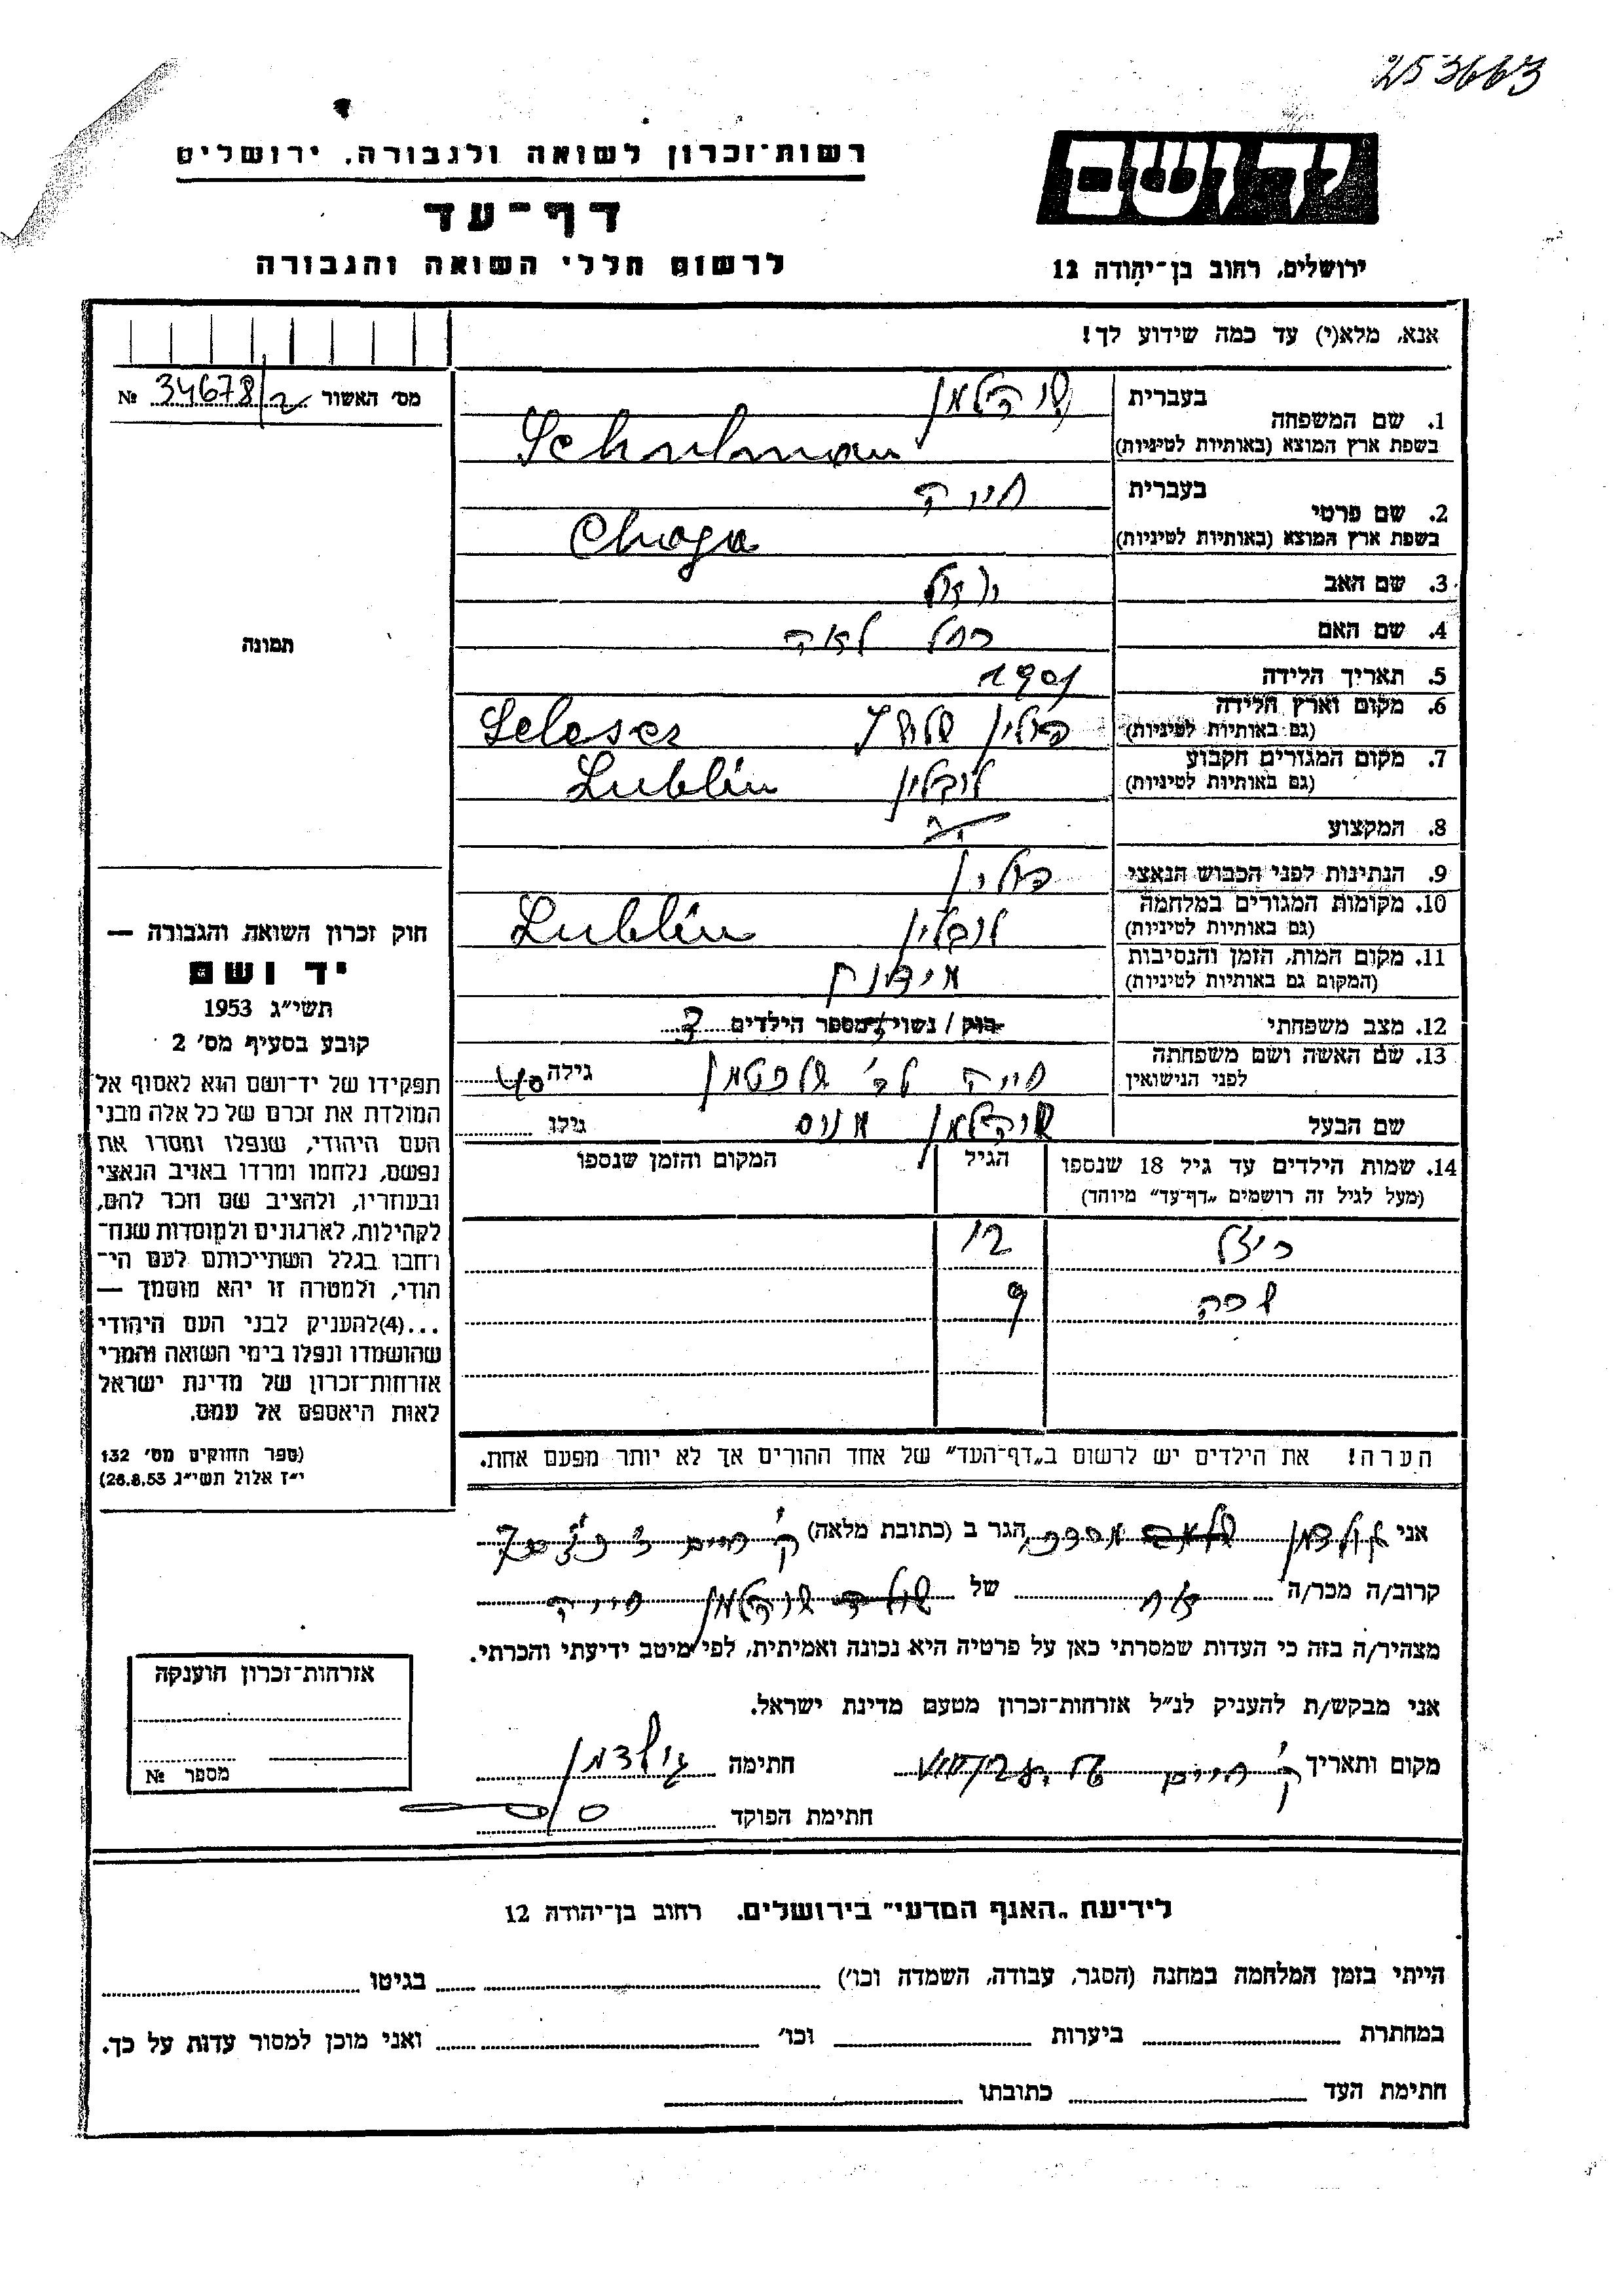 253663
רשות־זכרון לשואה ולגבורה, ירושלים
דף־עד
לרשום חללי השואה והגבורה
יד ושם
ירושלים, רחוב בן־יהודה 12
אנא, מלא(י) עד כמה שידוע לך!
מס׳ האשור 34678/2 №
תמונה
1. שם המשפחה
בעברית שוהלמן
בשפת ארץ המוצא (באותיות לטיניות) Schulman
2. שם פרטי
בעברית חיה
בשפת ארץ המוצא (באותיות לטיניות) Chaya
3. שם האב
4. שם האם רחל לאה
5. תאריך הלידה 1901
6. מקום וארץ הלידה
(גם באותיות לטיניות) פולין
7. מקום המגורים הקבוע
(גם באותיות לטיניות) לובלין Lublin
8. המקצוע
9. הנתינות לפני הכבוש הנאצי פולין
10. מקומות המגורים במלחמה
(גם באותיות לטיניות) לובלין Lublin
11. מקום המות, הזמן והנסיבות
(המקום גם באותיות לטיניות) מידנק
12. מצב משפחתי רוק / נשוי / מספר הילדים
13. שם האשה ושם משפחתה
לפני הנישואין חיה לב׳ גילה 40
שם הבעל מנוס גילו
14. שמות הילדים עד גיל 18 שנספו
(מעל לגיל זה רושמים „דף־עד״ מיוחד)
הגיל
המקום והזמן שנספו
12
שרה 9
הערה! את הילדים יש לרשום ב„דף־העד״ של אחד ההורים אך לא יותר מפעם אחת.
חוק זכרון השואה והגבורה —
יד ושם
תשי״ג 1953
קובע בסעיף מס׳ 2
תפקידו של יד־ושם הוא לאסוף אל
המולדת את זכרם של כל אלה מבני
העם היהודי, שנפלו ומסרו את
נפשם, נלחמו ומרדו באויב הנאצי
ובעוזריו, ולהציב שם וזכר להם,
לקהילות, לארגונים ולמוסדות שנח־
רחבו בגלל השתייכותם לעם הי־
הודי, ולמטרה זו יהא מוסמך —
...(4)להעניק לבני העם היהודי
שהושמדו ונפלו בימי השואה והמרי
אזרחות־זכרון של מדינת ישראל
לאות היאספם אל עמם.
(ספר החוקים מס׳ 132
י״ז אלול תשי״ג 26.8.53)
אני גולדמן הגר ב (כתובת מלאה) ק׳ חיים
קרוב/ה מכר/ה של חייה
מצהיר/ה בזה כי העדות שמסרתי כאן על פרטיה היא נכונה ואמיתית, לפי מיטב ידיעתי והכרתי.
אני מבקש/ת להעניק לנ״ל אזרחות־זכרון מטעם מדינת ישראל.
מקום ותאריך ק׳ חיים חתימה גולדמן
חתימת הפוקד
אזרחות־זכרון הוענקה
מספר №
לידיעת „האגף המדעי״ בירושלים. רחוב בן־יהודה 12
הייתי בזמן המלחמה במחנה (הסגר, עבודה, השמדה וכו׳) בגיטו
במחתרת ביערות וכו׳ ואני מוכן למסור עדות על כך.
חתימת העד כתובתו